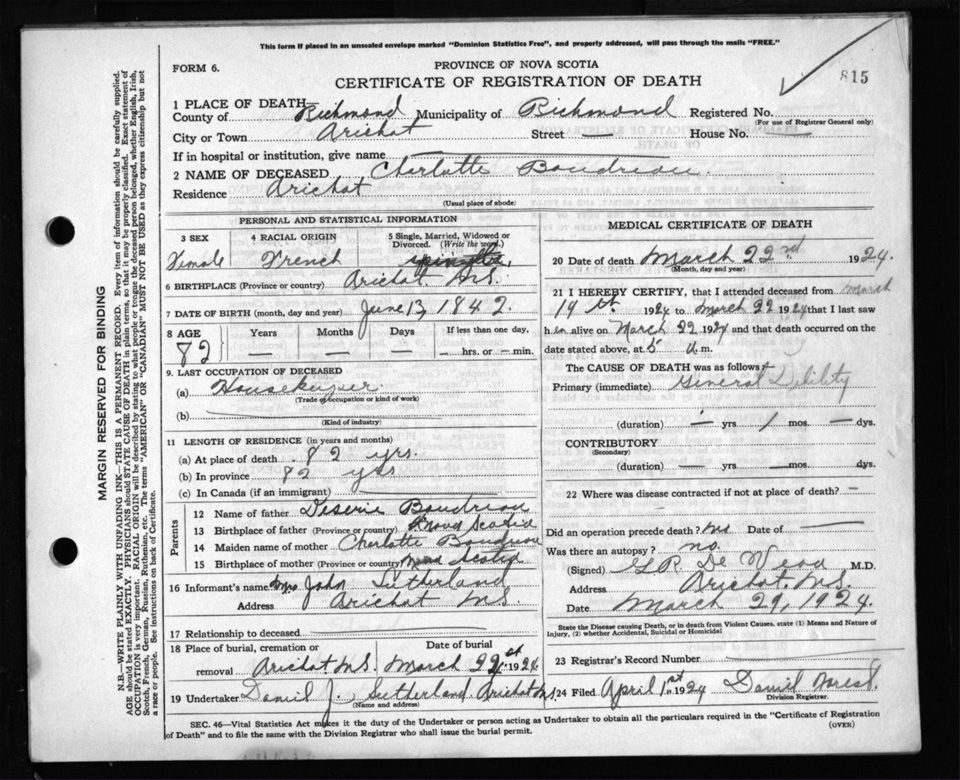 This form if placed in an unsealed envelope marked "Dominion Statistics Free", and properly addressed, will pass through the mails "FREE."
FORM 6.
PROVINCE OF NOVA SCOTIA
CERTIFICATE OF REGISTRATION OF DEATH
815
1 PLACE OF DEATH
County of Richmond Municipality of Richmond Registered No.
(For use of Registrar General only)
City or Town Arichat Street — House No. —
If in hospital or institution, give name
2 NAME OF DECEASED Charlotte Boudreau
Residence Arichat
(Usual place of abode)
PERSONAL AND STATISTICAL INFORMATION
3 SEX 4 RACIAL ORIGIN 5 Single, Married, Widowed or Divorced. (Write the word.)
Female French spinster
6 BIRTHPLACE (Province or country) Arichat N.S.
7 DATE OF BIRTH (month, day and year) June 13, 1842.
8 AGE Years Months Days If less than one day,
82 — — — — hrs. or — min.
9. LAST OCCUPATION OF DECEASED
(a) Housekeeper
(Trade occupation or kind of work)
(b)
(Kind of industry)
11 LENGTH OF RESIDENCE (in years and months)
(a) At place of death 82 yrs.
(b) In province 82 yrs
(c) In Canada (if an immigrant)
Parents
12 Name of father Boudreau
13 Birthplace of father (Province or country) Nova Scotia
14 Maiden name of mother Charlotte Boudreau
15 Birthplace of mother (Province or country) Nova Scotia
16 Informant's name Mrs John Sutherland
Address Arichat N.S.
17 Relationship to deceased
18 Place of burial, cremation or Date of burial
removal Arichat N.S. March 1924
19 Undertaker Daniel J. Sutherland Arichat N.S.
(Name and address)
MEDICAL CERTIFICATE OF DEATH
20 Date of death March 22nd 1924.
(Month, day and year)
21 I HEREBY CERTIFY, that I attended deceased from March
19th 1924 to March 22 1924 that I last saw
her alive on March 22 1924 and that death occurred on the
date stated above, at 5 m.
The CAUSE OF DEATH was as follows:
Primary (immediate) General Debility
(duration) — yrs. 1 mos. — dys.
CONTRIBUTORY
(Secondary)
(duration) — yrs. — mos. — dys.
22 Where was disease contracted if not at place of death? —
Did an operation precede death? No Date of —
Was there an autopsy? no.
(Signed) M.D.
Address Arichat, N.S.
Date March 29, 1924.
State the Disease causing Death, or in death from Violent Causes, state (1) Means and Nature of Injury, (2) whether Accidental, Suicidal or Homicidal
23 Registrar's Record Number
24 Filed April 1st 1924 Daniel
Division Registrar.
SEC. 46—Vital Statistics Act makes it the duty of the Undertaker or person acting as Undertaker to obtain all the particulars required in the "Certificate of Registration
of Death" and to file the same with the Division Registrar who shall issue the burial permit.
(OVER)
MARGIN RESERVED FOR BINDING
N.B.—WRITE PLAINLY WITH UNFADING INK—THIS IS A PERMANENT RECORD. Every item of information should be carefully supplied.
AGE should be stated EXACTLY. PHYSICIANS should STATE CAUSE OF DEATH in plain terms, so that it may be properly classified. Exact statement of
OCCUPATION is very important. RACIAL ORIGIN will be described by stating to what people or tongue the deceased person belonged, whether English, Irish,
Scotch, French, German, Russian, Ruthenian, etc. The terms "AMERICAN" OR "CANADIAN" MUST NOT BE USED as they express citizenship but not
a race or people. See instructions on back of Certificate.